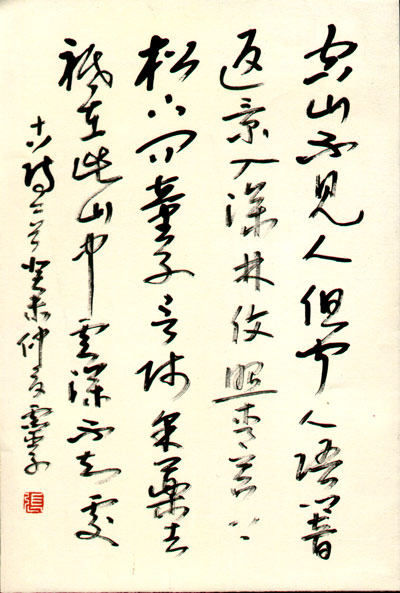 空山不見人但聞人語響
返景入深林復照青苔上
松下問童子言師采藥去
祇在此山中雲深不知處
古詩二首癸未仲夏
張